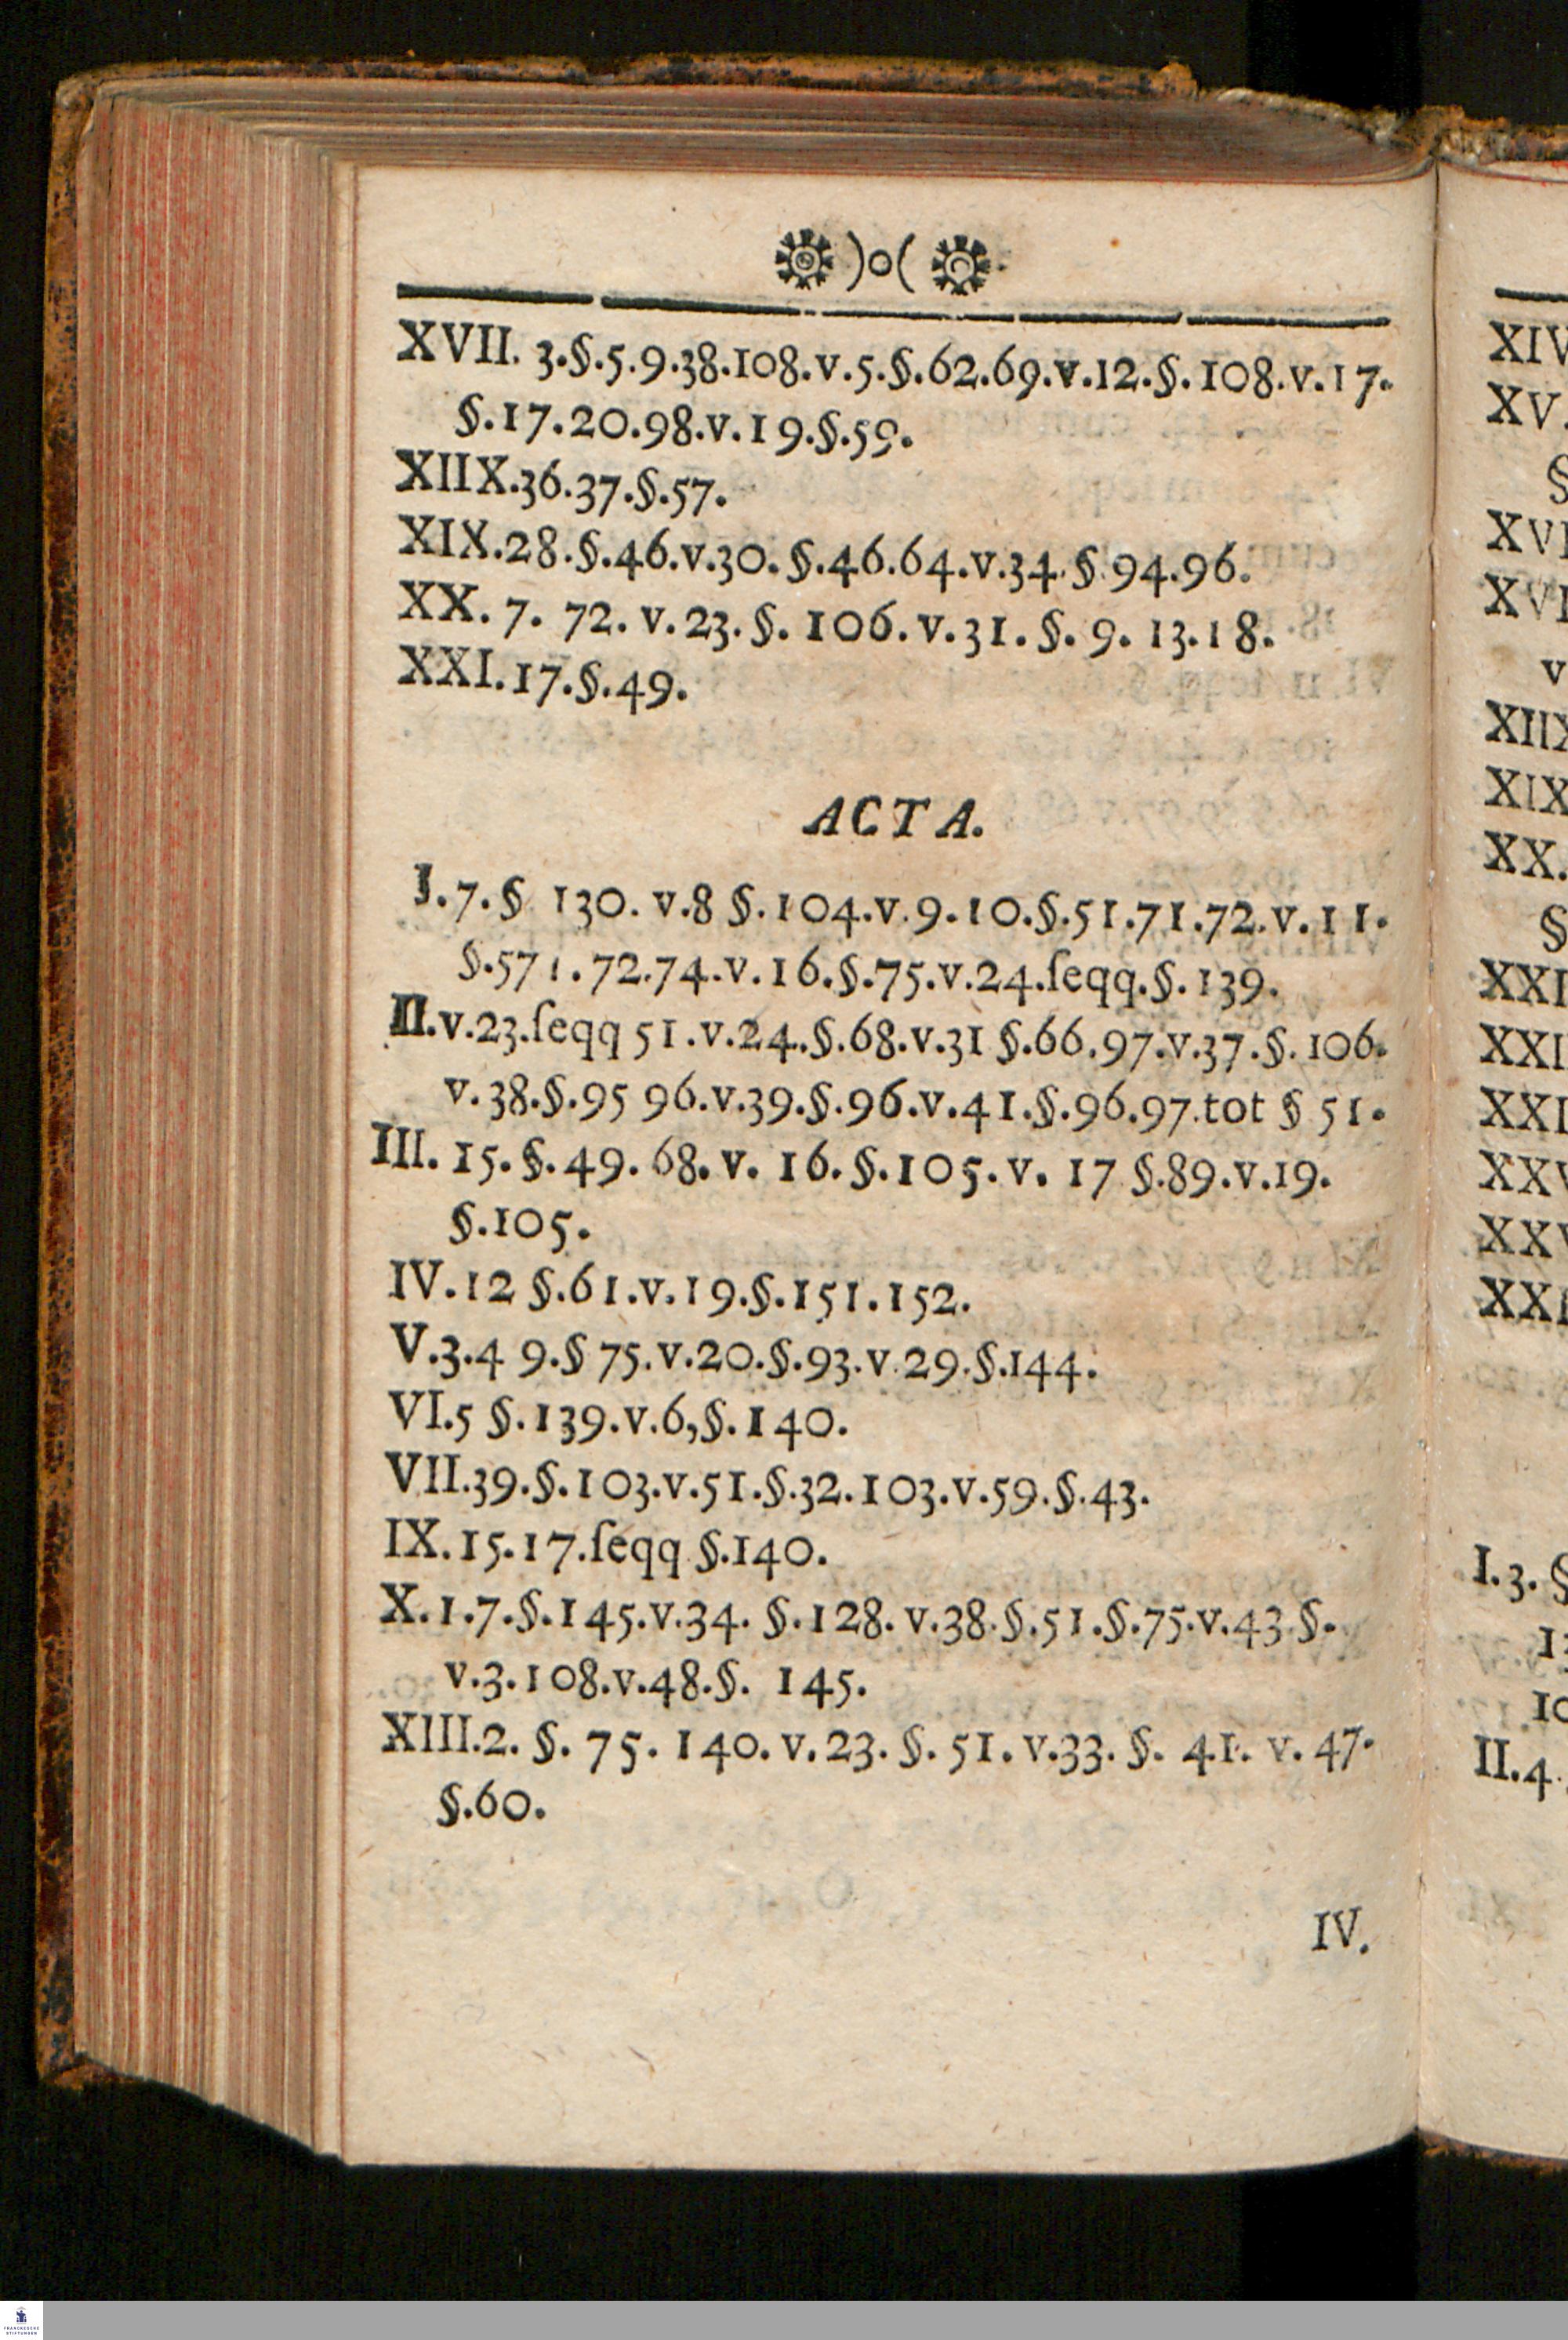 )o(
XVII. 3.§.5.9.38.108.v.5.§.62.69.v.12.§.108.v.17.
§.17.20.98.v.19.§.59.
XIIX.36.37.§.57.
XIX.28.§.46.v.30.§.46.64.v.34.§.94.96.
XX. 7. 72. v. 23. §. 106. v. 31. §. 9. 13. 18.
XXI.17.§.49.
ACTA.
I. 7. § 130. v.8 §.104.v.9.10.§.51.71.72.v.11.
§.571.72.74.v.16.§.75.v.24.ſeqq.§.139.
II.v.23.ſeqq 51.v.24.§.68.v.31 §.66.97.v.37.§.106.
v.38.§.95 96.v.39.§.96.v.41.§.96.97.tot § 51.
III. 15. §. 49. 68. v. 16. §.105. v. 17 §.89.v.19.
§.105.
IV.12 §.61.v.19.§.151.152.
V.3.4 9.§ 75.v.20.§.93.v.29.§.144.
VI.5 §.139.v.6,§.140.
VII.39.§.103.v.51.§.32.103.v.59.§.43.
IX.15.17.ſeqq §.140.
X.1.7.§.145.v.34. §.128. v.38.§.51.§.75.v.43.§.
v.3.108.v.48.§. 145.
XIII.2. §. 75. 140. v. 23. §. 51. v.33. §. 41. v. 47.
§.60.
IV.
XIV
XV.
§
XVI
XVI
v
XIIX
XIX
XX.
§
XXI
XXI
XXI
XXV
XXV
I.3. §
10
II.4.
FRANCKESCHE
STIFTUNGEN